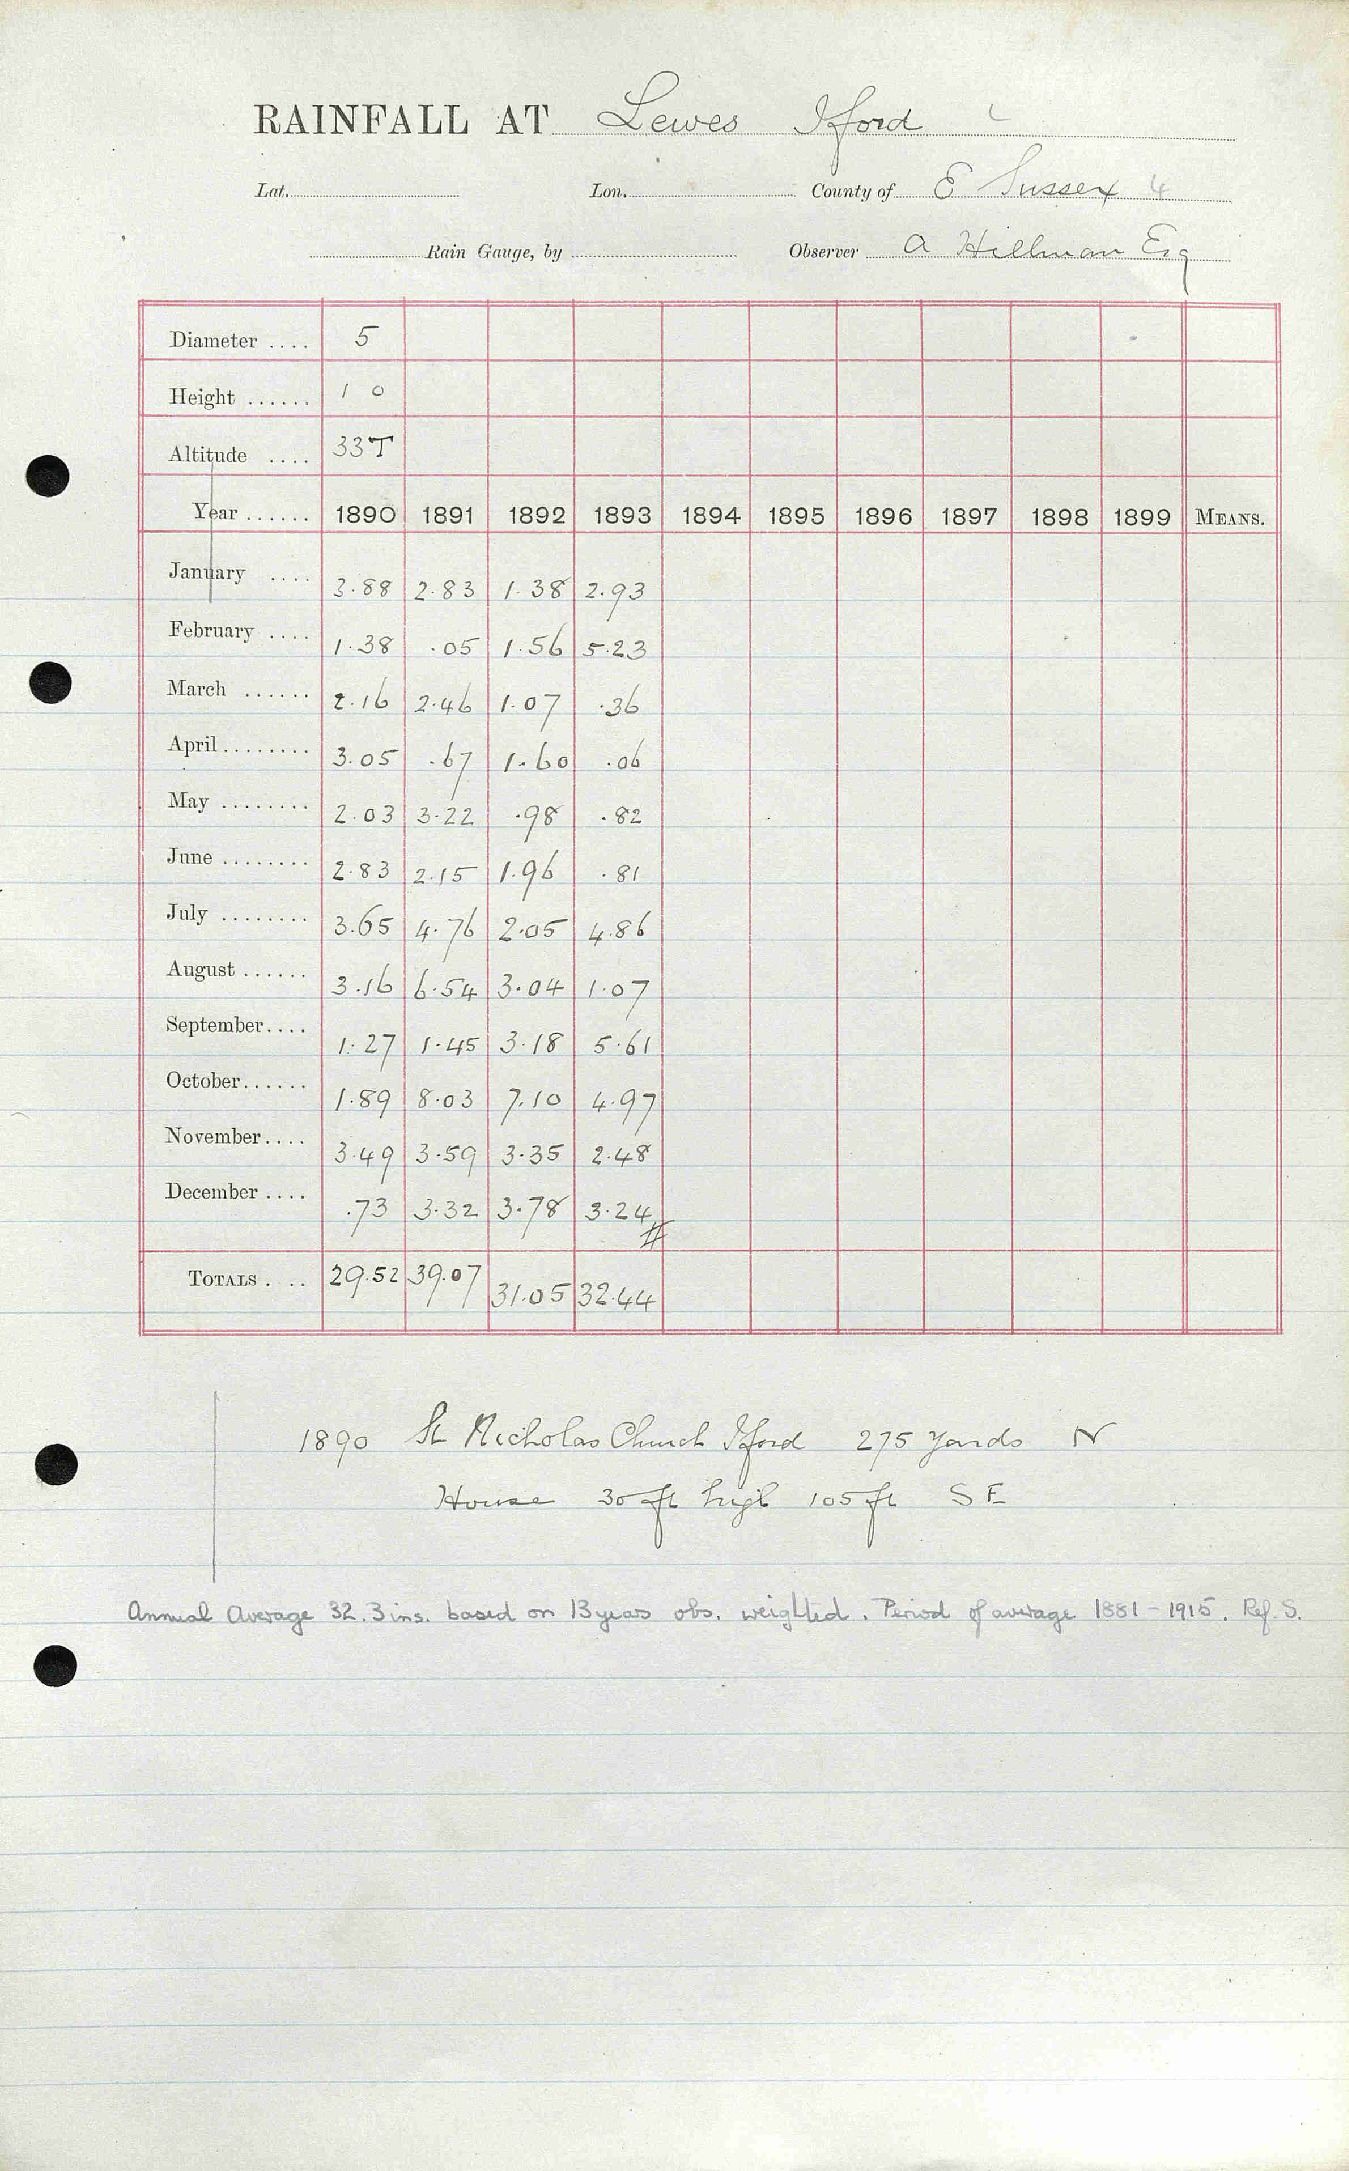 RAINFALL AT Lewes Iford
Lat. Lon. County of E Sussex 4
Rain Gauge, by Observer A Hillman Esq
Diameter .... 5
Height ...... 1 0
Altitude .... 33T
Year ...... 1890 1891 1892 1893 1894 1895 1896 1897 1898 1899 MEANS.
January .... 3.88 2.83 1.38 2.93
February .... 1.38 .05 1.56 5.23
March ...... 2.16 2.46 1.07 .36
April ........ 3.05 .67 1.60 .06
May ........ 2.03 3.22 .98 .82
June ........ 2.83 2.15 1.96 .81
July ........ 3.65 4.76 2.05 4.86
August ...... 3.16 6.54 3.04 1.07
September.... 1.27 1.45 3.18 5.61
October...... 1.89 8.03 7.10 4.97
November.... 3.49 3.59 3.35 2.48
December .... .73 3.32 3.78 3.24
TOTALS . .. 29.52 39.07 31.05 32.44
1890 St Nicholas Church Iford 275 yards N
House 30 ft high 105 ft SE
Annual Average 32.3 ins. based on 13 years obs. weighted. Period of average 1881-1915. Ref. S.